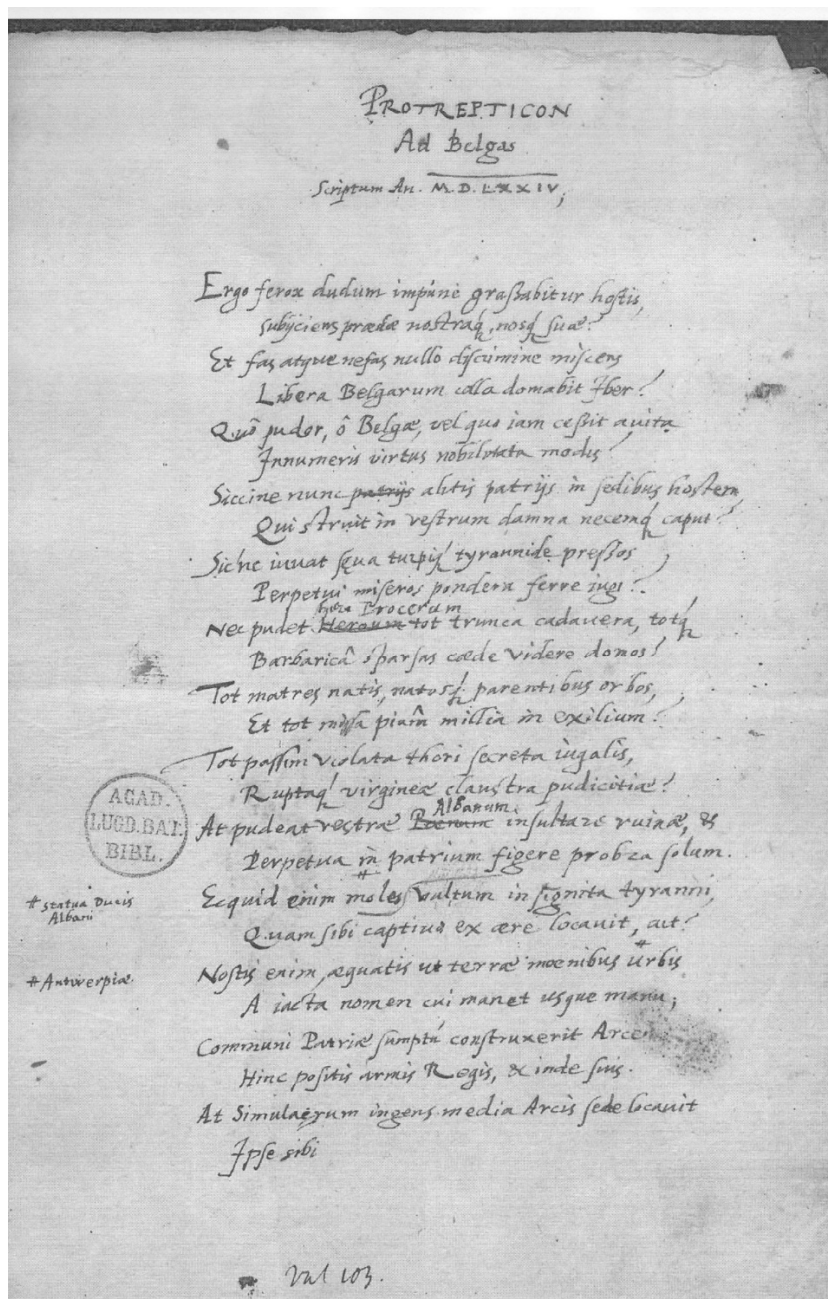 PROTREPTICON
Ad Belgas
Scriptum An. M.D.LXXIV,
Ergo ferox dudum impunè grassabitur hostis,
subijciens prædæ nostraq, nosq suæ?
Et fas atque nefas nullo discrimine miscens
Libera Belgarum colla domabit Iber?
Quô pudor, ô Belgæ, vel quo iam cessit avita
Innumeris virtus nobilitata modis?
Siccine nunc patrijs alitis patrijs in sedibus hostem,
Qui struit in vestrum damna necemq caput?
Sicine iuvat sæva turpiq tyrannide pressos
Perpetui miseros pondera ferre iugi?
Procerum
Nec pudet Heroum tot trunca cadavera, totq
Barbaricâ sparsas cæde videre domos?
Tot matres natis, natosq parentibus orbos,
Et tot missa piûm millia in exilium?
Tot passim violata thori secreta iugalis,
Ruptaq virgineæ claustra pudicitiæ?
Albanum
At pudeat vestræ Poenum insultare ruinæ, &
Perpetua in patrium figere probra solum.
# statua Ducis
Albani
Ecquid enim moles vultum insignita tyranni,
Quam sibi captivo ex ære locavit, ait?
# Antwerpiæ
Nostis enim, æquatis ut terræ moenibus urbis
A iacta nomen cui manet usque manu;
Communi Patriæ sumptu construxerit Arcem
Hinc positis armis Regis, & inde suis.
At Simulacrum ingens media Arcis sede locavit
Ipse sibi
ACAD.
LUGD.BAT.
BIBL.
Vul 103.